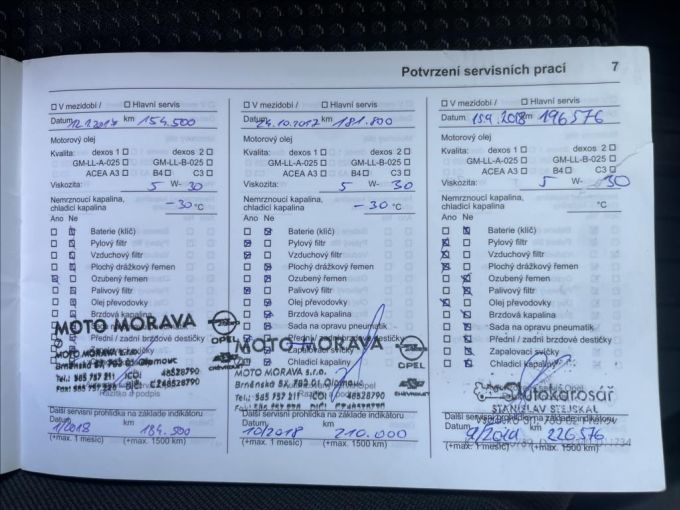 Potvrzení servisních prací 7
V mezidobí / Hlavní servis
Datum 12.1.2017 km 154.500
Motorový olej
Kvalita: dexos 1 dexos 2
GM-LL-A-025 GM-LL-B-025
ACEA A3 B4 C3
Viskozita: 5 W- 30
Nemrznoucí kapalina,
chladicí kapalina -30 °C
Ano Ne
Baterie (klíč)
Pylový filtr
Vzduchový filtr
Plochý drážkový řemen
Ozubený řemen
Palivový filtr
Olej převodovky
Brzdová kapalina
Sada na opravu pneumatik
Přední / zadní brzdové destičky
Zapalovací svíčky
MOTO MORAVA
OPEL
MOTO MORAVA s.r.o.
Brněnská 57, 783 01 Olomouc
Tel.: 585 757 211 IČO: 48528790
CHEVROLET
Razítko a podpis
Další servisní prohlídka na základě indikátoru
Datum 1/2018 km 184.500
(+max. 1 měsíc) (+max. 1500 km)
V mezidobí / Hlavní servis
Datum 24.10.2017 km 181.800
Motorový olej
Kvalita: dexos 1 dexos 2
GM-LL-A-025 GM-LL-B-025
ACEA A3 B4 C3
Viskozita: 5 W- 30
Nemrznoucí kapalina,
chladicí kapalina -30 °C
Ano Ne
Baterie (klíč)
Pylový filtr
Vzduchový filtr
Plochý drážkový řemen
Ozubený řemen
Palivový filtr
Olej převodovky
Brzdová kapalina
Sada na opravu pneumatik
Přední / zadní brzdové destičky
Zapalovací svíčky
MOTO MORAVA
OPEL
MOTO MORAVA s.r.o.
Tel.: 585 757 211 IČO: 48528790
CHEVROLET
Další servisní prohlídka na základě indikátoru
Datum 10/2018 km 210.000
(+max. 1 měsíc) (+max. 1500 km)
V mezidobí / Hlavní servis
Datum 15.9.2018 km 196576
Motorový olej
Kvalita: dexos 1 dexos 2
GM-LL-A-025 GM-LL-B-025
ACEA A3 B4 C3
Viskozita: 5 W- 30
Nemrznoucí kapalina,
chladicí kapalina °C
Ano Ne
Baterie (klíč)
Pylový filtr
Vzduchový filtr
Plochý drážkový řemen
Ozubený řemen
Palivový filtr
Olej převodovky
Brzdová kapalina
Sada na opravu pneumatik
Přední / zadní brzdové destičky
Zapalovací svíčky
Chladicí kapaliny
Autokarosář
STANISLAV STEJSKAL
Další servisní prohlídka na základě indikátoru
Datum km 226576
(+max. 1 měsíc) (+max. 1500 km)